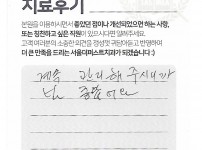 치료후기
본원을 이용하시면서 좋았던 점이나 개선되었으면 하는 사항,
또는 칭찬하고 싶은 직원이 있으시다면 알려주세요.
고객 여러분의 소중한 의견을 정성껏 귀담아듣고 반영하여
더 큰 만족을 드리는 서울더퍼스트치과가 되겠습니다 :)
계속 관리해 주시니까
넘 좋좋아요